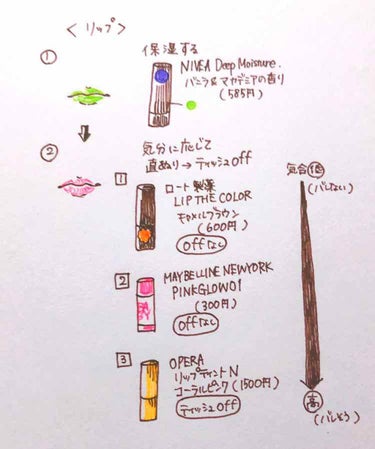 <リップ>
①
保湿する
NIVEA Deep Moisture.
バニラ&マカデミアの香り
(585円)
②
気分に応じて
直ぬり→ティッシュoff
1
ロート製薬
LIP THE COLOR
キャメルブラウン
(600円)
offなし
2
MAYBELLINE NEWYORK
PINKGLOW01
(300円)
offなし
3
OPERA
リップティントN
コーラルピンク(1500円)
ティッシュoff
気合 低
(バレない)
高
(バレそう)